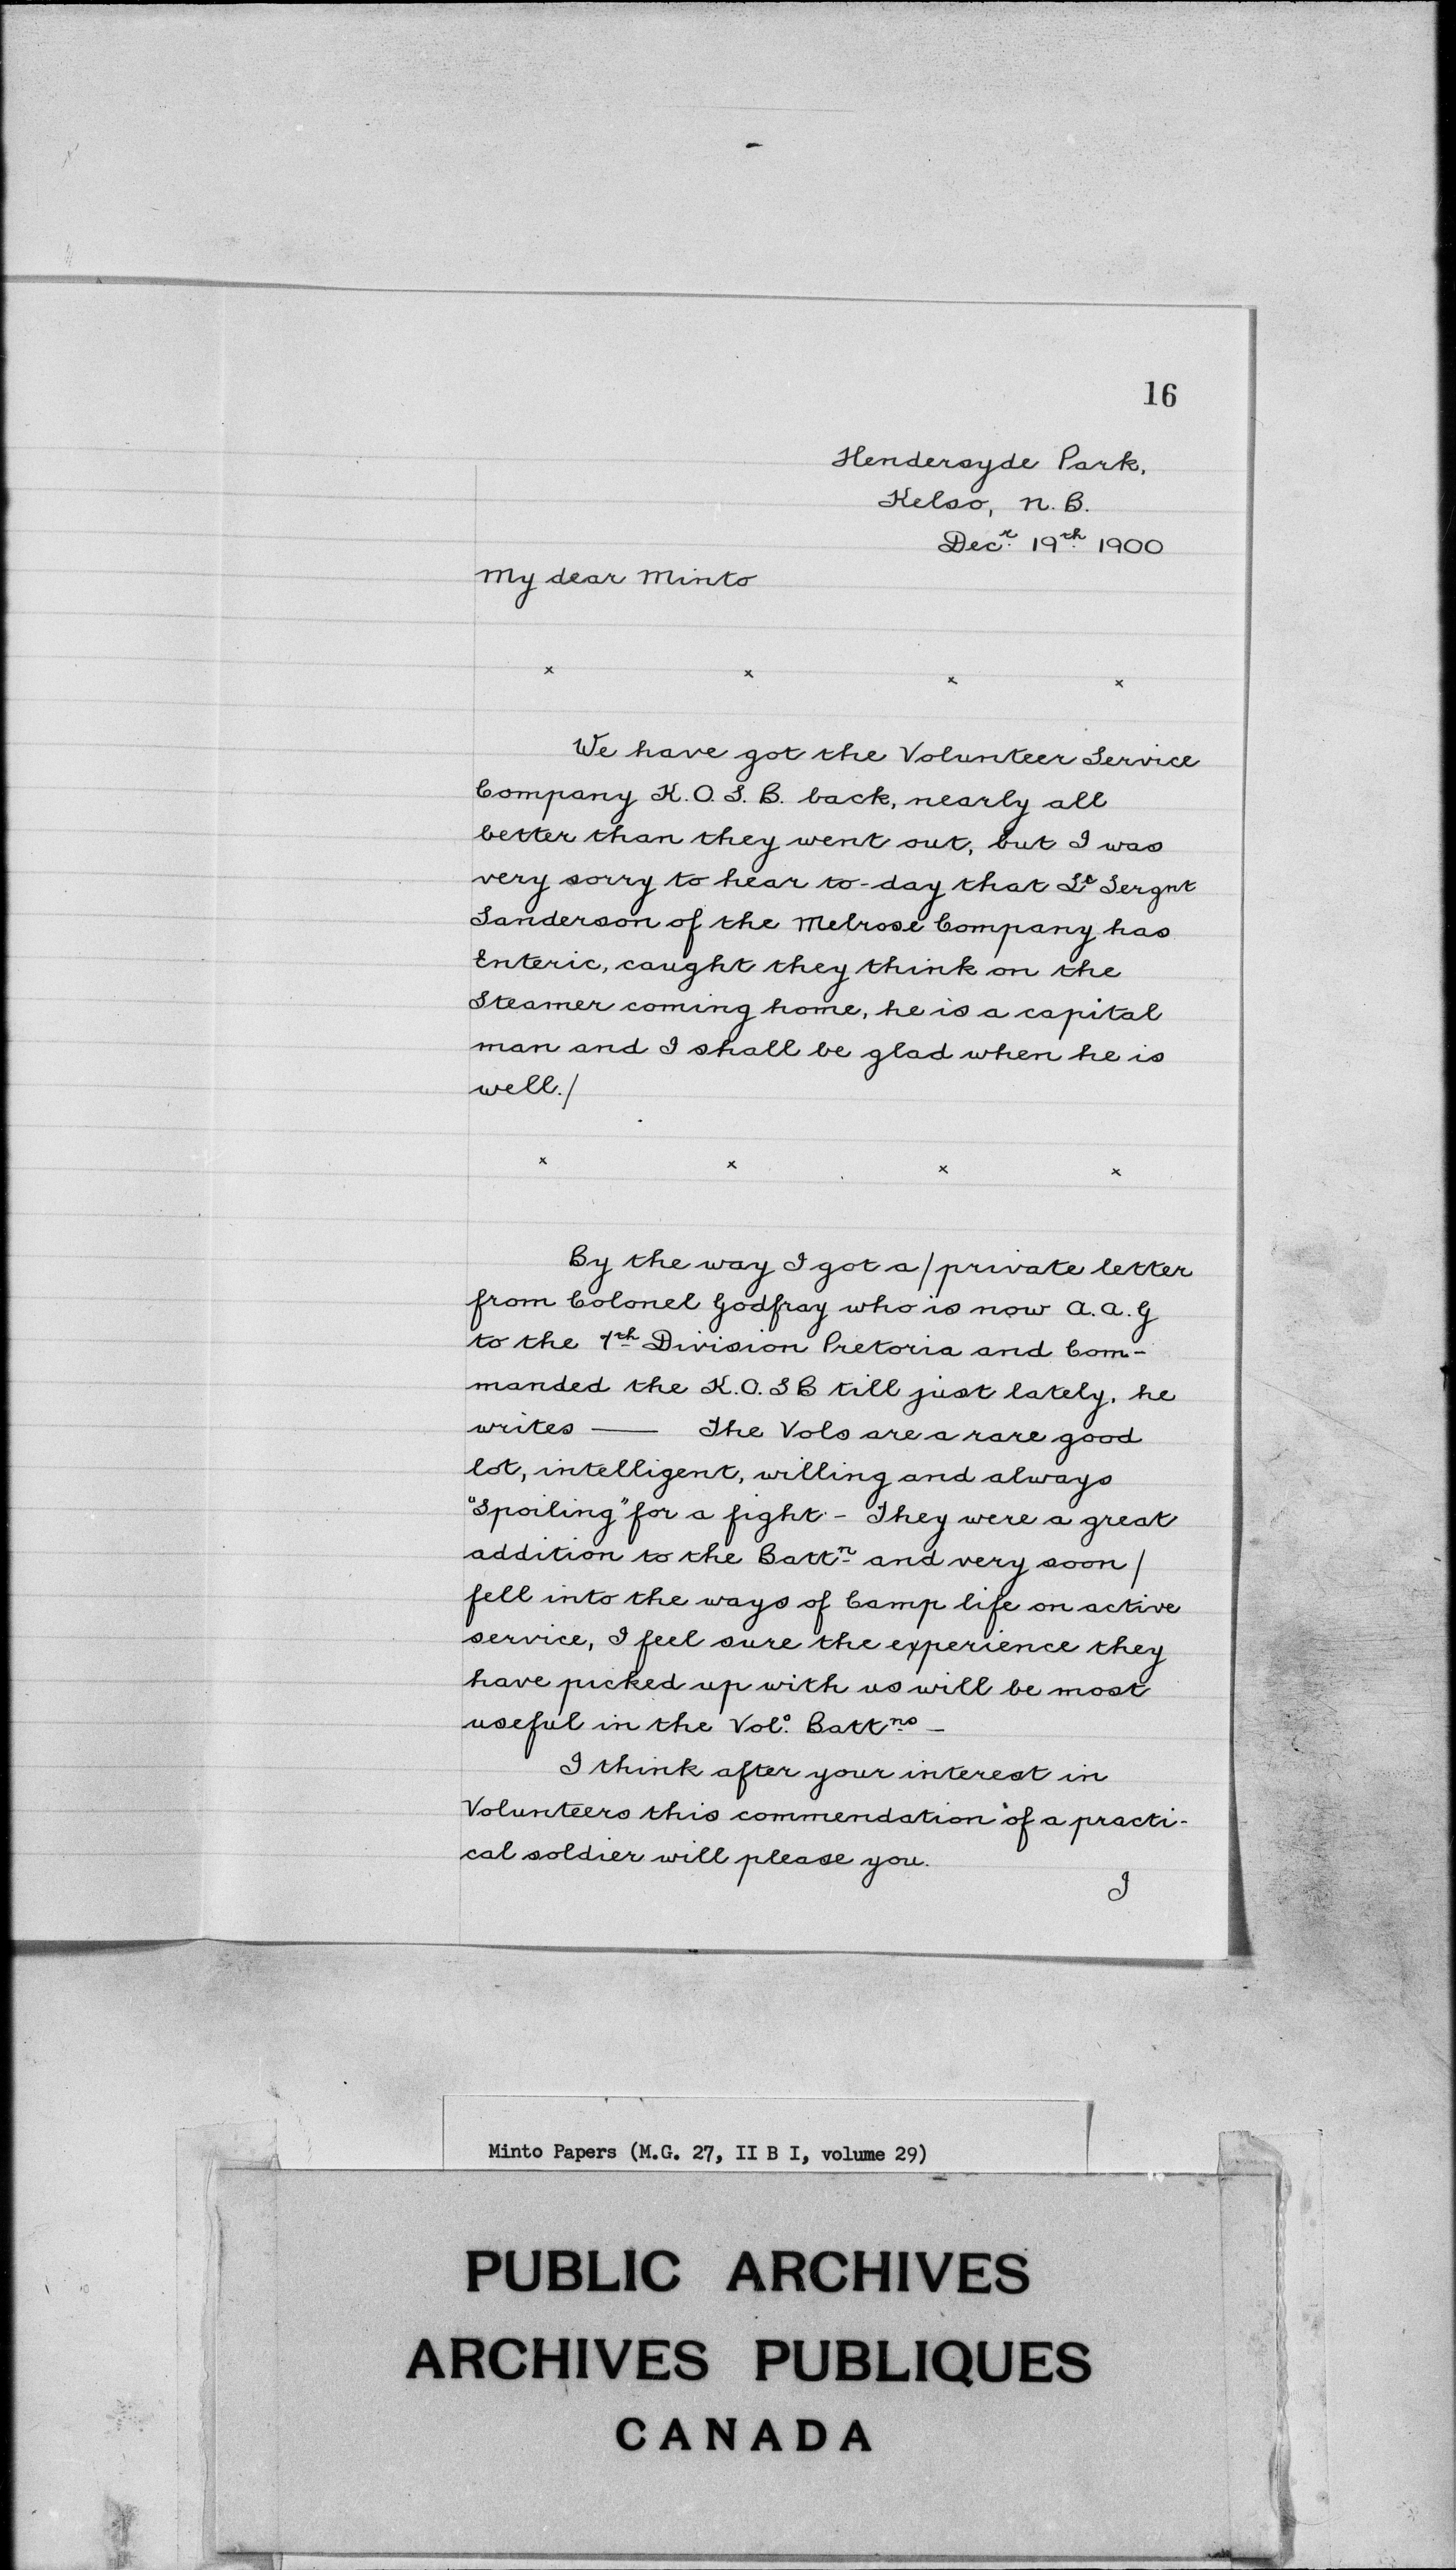 16
Hendersyde Park,
Kelso, N. B.
Decr. 19th 1900
My dear Minto
x x x x
We have got the Volunteer Service
Company K. O. S. B. back, nearly all
better than they went out, but I was
very sorry to hear to-day that Sergnt
Sanderson of the Melrose Company has
Enteric, caught they think on the
Steamer coming home, he is a capital
man and I shall be glad when he is
well./
x x x x
By the way I got a/private letter
from Colonel Godfray who is now A. A. G
to the 7th Division Pretoria and Com-
manded the K. O. S B till just lately, he
writes —— The Vols are a rare good
lot, intelligent, willing and always
"Spoiling" for a fight - They were a great
addition to the Battn and very soon/
fell into the ways of Camp life on active
service, I feel sure the experience they
have picked up with us will be most
useful in the Vols. Battns —
I think after your interest in
Volunteers this commendation of a practi-
cal soldier will please you.
I
Minto Papers (M.G. 27, II B I, volume 29)
PUBLIC ARCHIVES
ARCHIVES PUBLIQUES
CANADA